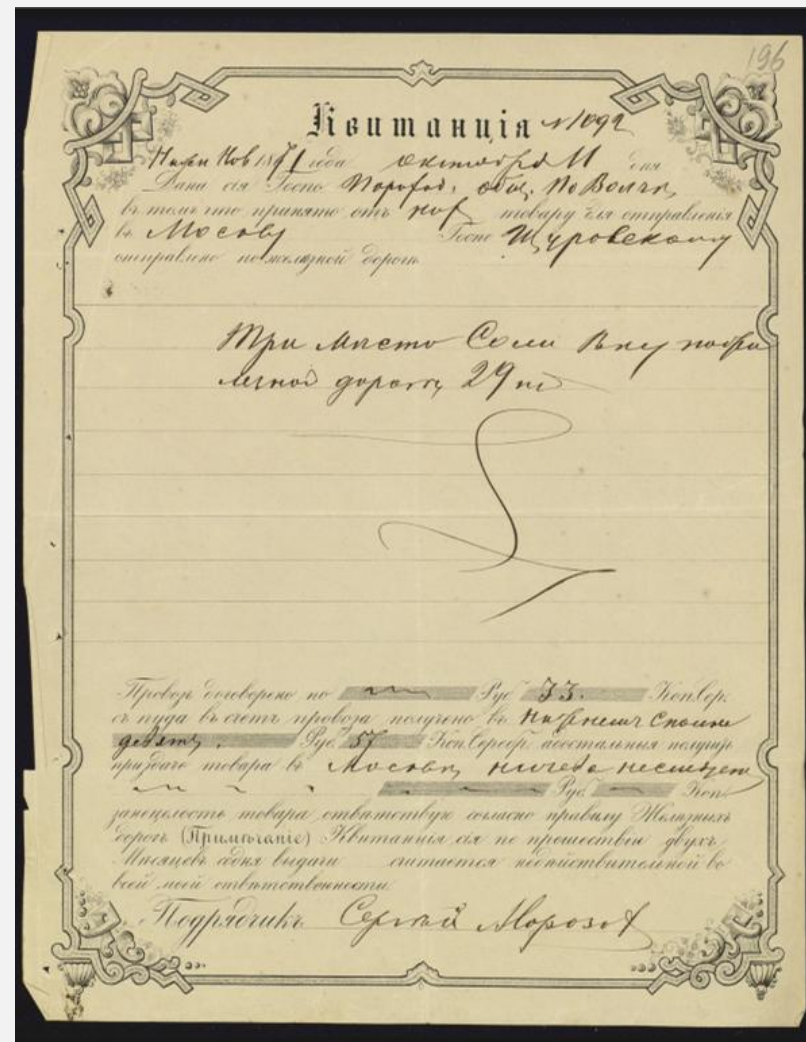 196
Квитанція №1092
Нижн Нов 1871 года октября 11 дня
Дана сія Госпо Пароход. общ. По Волгѣ
въ томъ что принято отъ товару для отправленія
въ Москву Госпо Щуровскому
отправлено по желѣзной дорогѣ
Три мѣсто Соли
дорогѣ 29
Провозъ договорено по Руб 33. Коп. Сер.
съ пуда въ счетъ провоза получено въ
девять. Руб 57 Коп. Серебр. а достальныя получить
при здаче товара въ Москвѣ, ничего
Руб. Коп.
за целость товара ответствую согласно правилу Желѣзныхъ
дорогъ (Примѣчаніе) Квитанція сія по прошествіи двухъ
Мѣсяцевъ со дня выдачи считается недѣйствительной во
всей моей ответственности.
Подрядчикъ Сергѣй Морозов